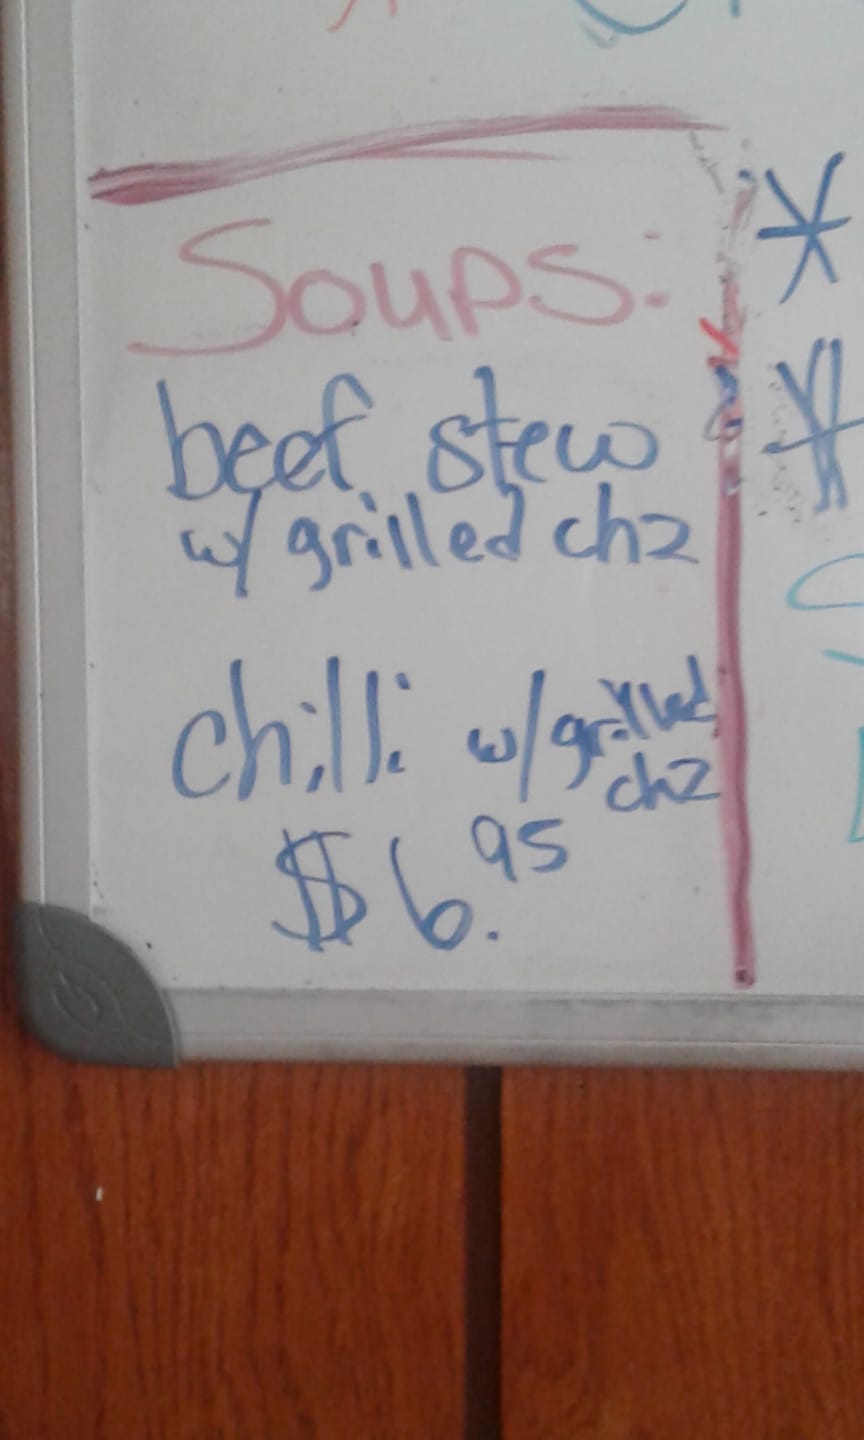 Soups:
beef stew
w/ grilled chz
chilli w/ grilled
chz
$6.95